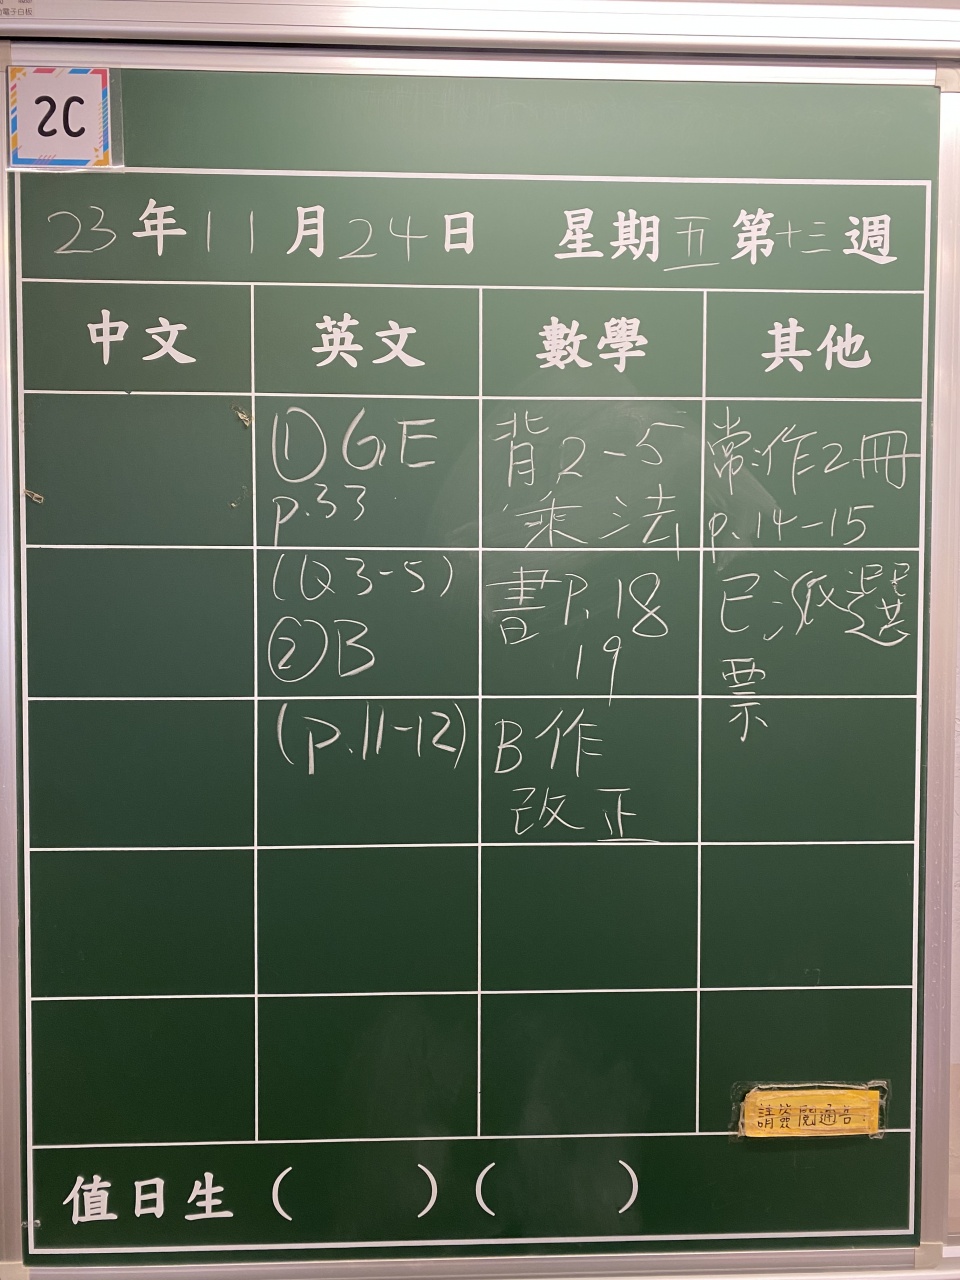 電子白板
2C
23年11月24日 星期五第十三週
中文 英文 數學 其他
①GE
p.33
(Q3-5)
②B
(p.11-12)
背2-5
乘法
書P.18
19
B作
改正
常作2冊
p.14-15
已派選
票
請簽閱通告
值日生( )( )